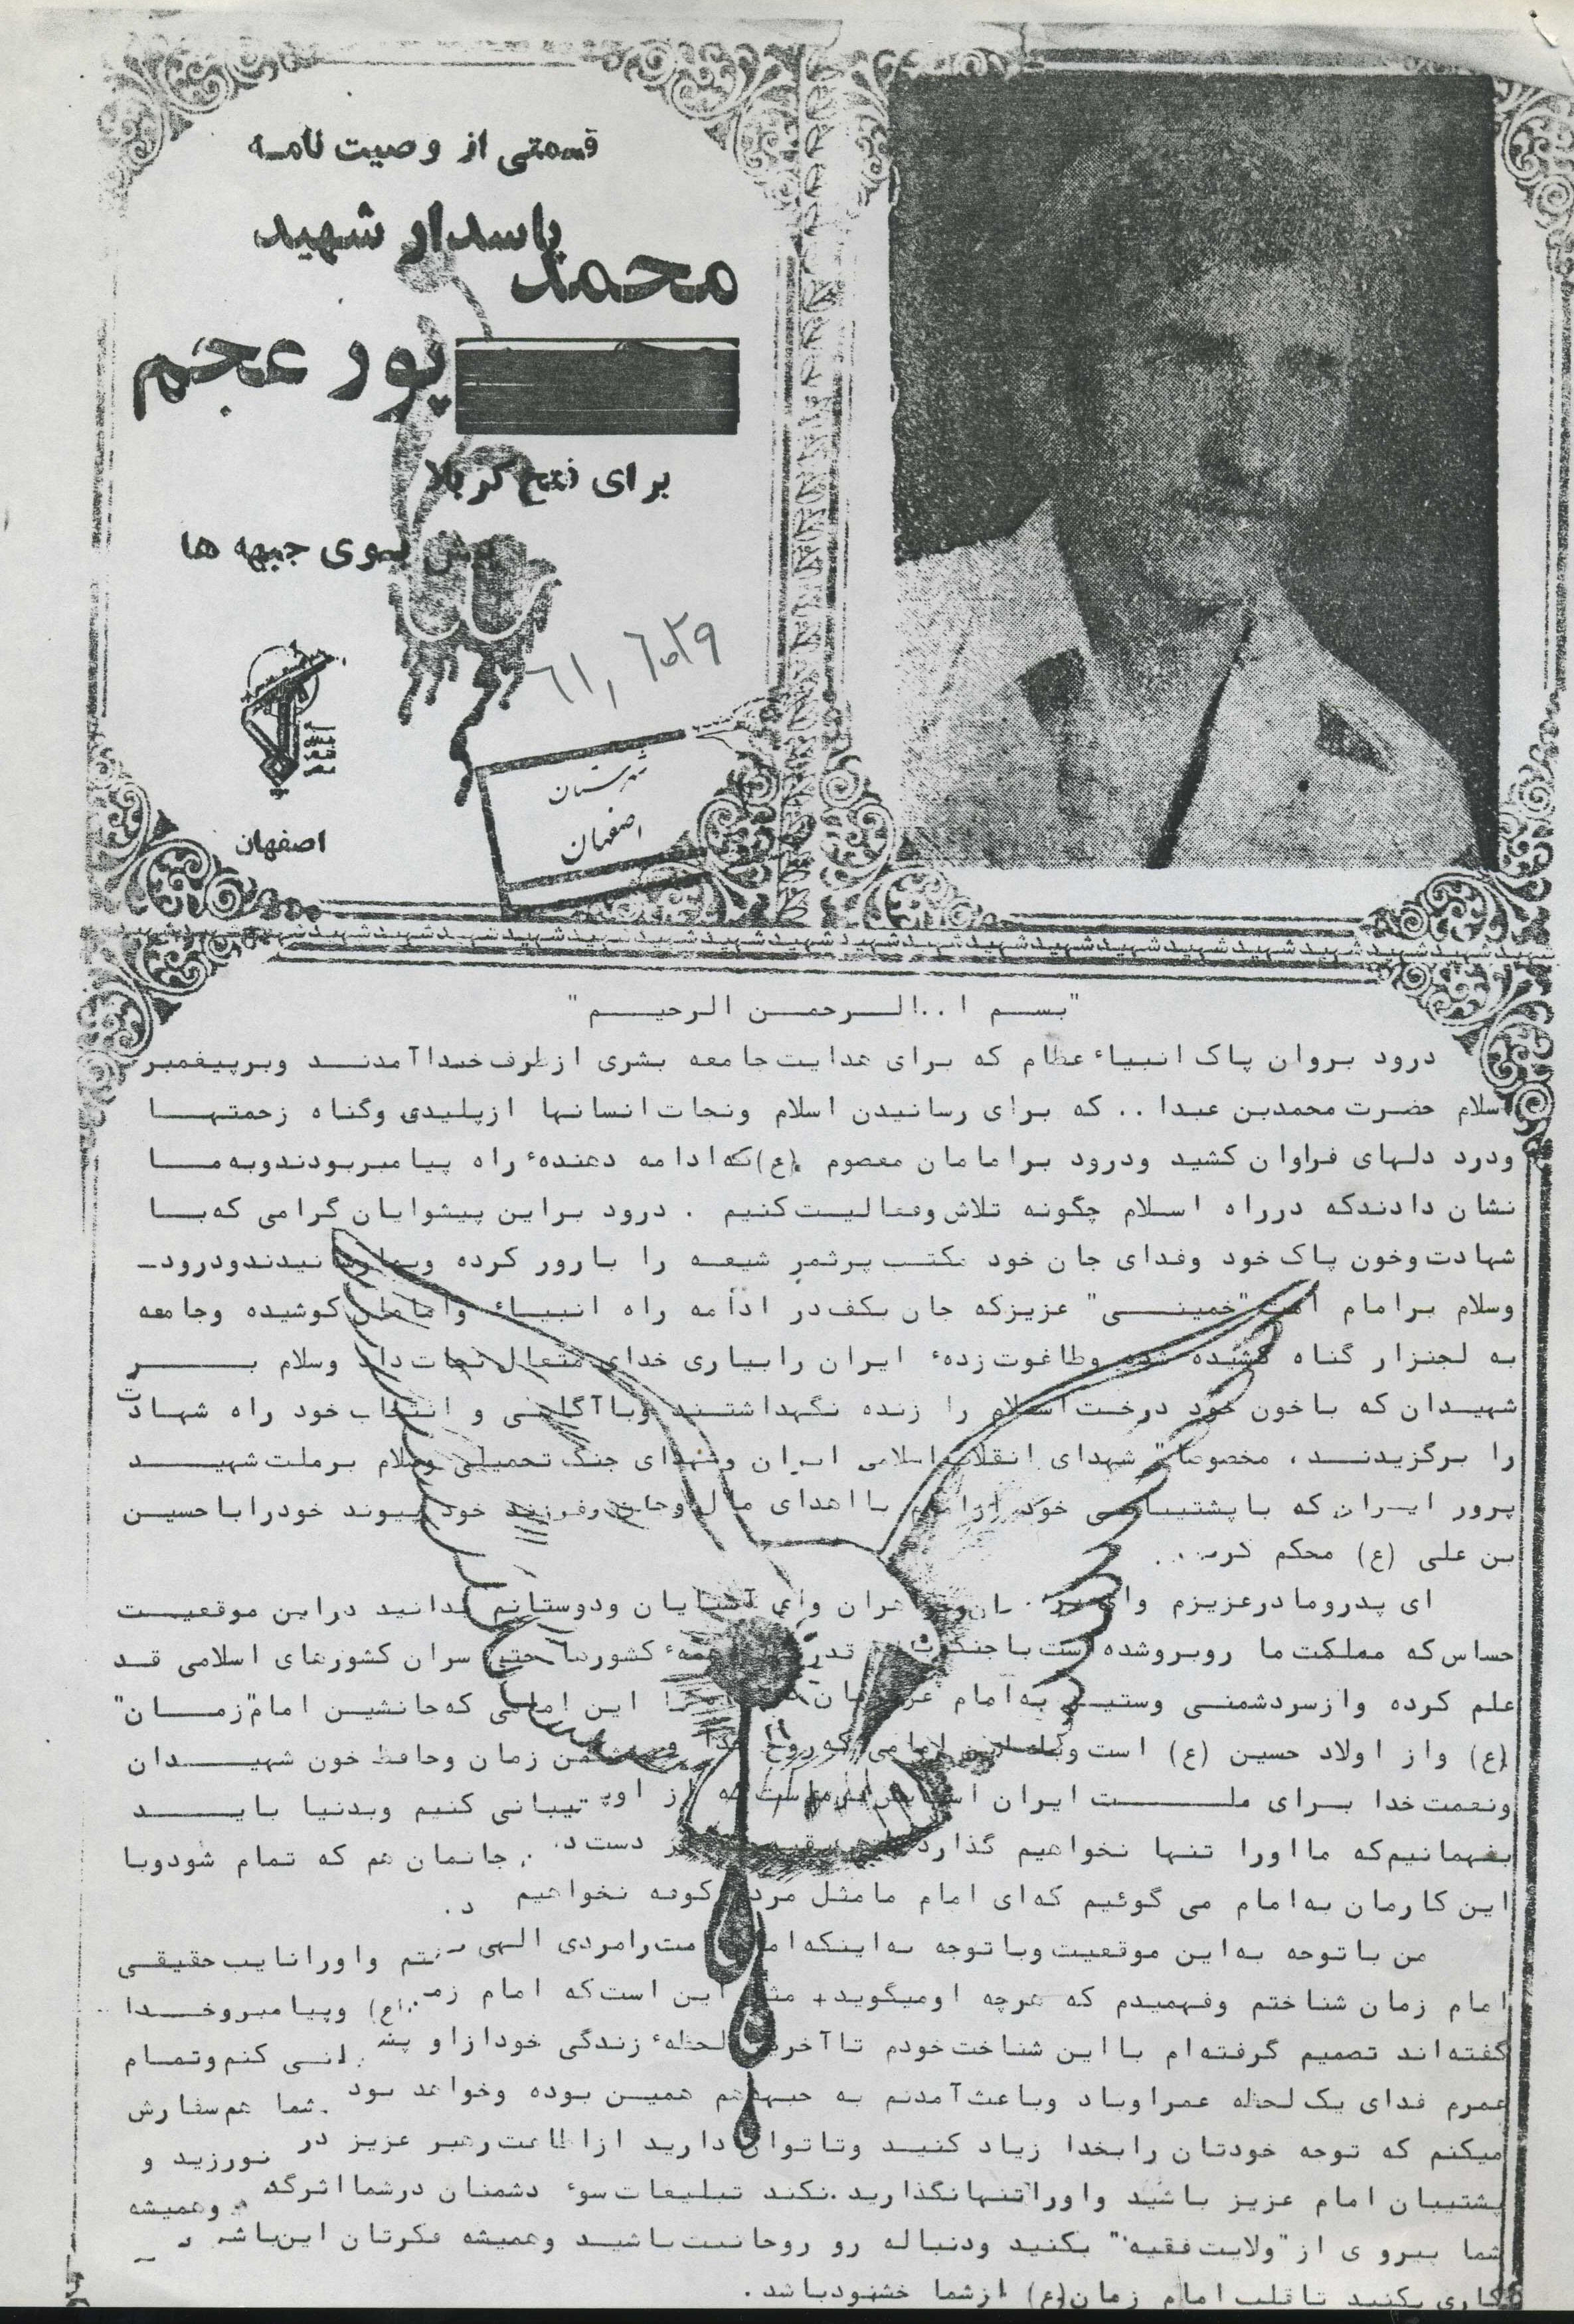 قسمتی از وصیت نامه
پاسدار شهید
محمد
پور عجم
برای فتح کربلا
پیش بسوی جبهه ها
۶۱٫۶٫۲۹
شهرستان
اصفهان
اصفهان
شهید شهید شهید شهید شهید شهید شهید شهید شهید شهید شهید شهید شهید شهید شهید شهید شهید شهید شهید شهید
"بسم ا..الرحمن الرحیم"
درود بروان پاک انبیاء عظام که برای هدایت جامعه بشری ازطرف خدا آمدند وبرپیغمبر
اسلام حضرت محمدبن عبدا .. که برای رسانیدن اسلام ونجات انسانها ازپلیدی وگناه زحمتها
ودرد دلهای فراوان کشید ودرود برامامان معصوم (ع)که ادامه دهندهٔ راه پیامبربودندوبه ما
نشان دادندکه درراه اسلام چگونه تلاش وفعالیت کنیم . درود براین پیشوایان گرامی که با
شهادت وخون پاک خود وفدای جان خود مکتب پرثمر شیعه را بارور کرده وبما رسانیدندودرود-
وسلام برامام امت "خمینی" عزیزکه جان بکف در ادامه راه انبیاء وامامان کوشیده وجامعه
به لجنزار گناه کشیده شده وطاغوت زدهٔ ایران رابیاری خدای متعال نجات داد وسلام بر
شهیدان که باخون خود درخت اسلام را زنده نگهداشتند وباآگاهی و انتخاب خود راه شهادت
را برگزیدند، مخصوصا" شهدای انقلاب اسلامی ایران وشهدای جنگ تحمیلی وسلام برملت شهید
پرور ایران که باپشتیبانی خود ازامام بااهدای مال وجان وفرزند خود پیوند خودراباحسین
بن علی (ع) محکم کرد..
ای پدرومادرعزیزم وای خواهران وای آشنایان ودوستانم بدانید دراین موقعیت
حساس که مملکت ما روبروشده است باجنگ همهٔ کشورها حتی سران کشورهای اسلامی قد
علم کرده وازسردشمنی وستیز به امام این امامی که جانشین امام"زمان"
(ع) واز اولاد حسین (ع) است امامی که روح خدا زمان وحافظ خون شهیدان
ونعمت خدا برای ملت ایران است که از او پشتیبانی کنیم وبدنیا باید
بفهمانیم که مااورا تنها نخواهیم گذارد دست جانمان هم که تمام شودوبا
این کارمان به امام می گوئیم که ای امام مامثل مردم کوفه نخواهیم
من باتوجه به این موقعیت وباتوجه به اینکه امام امت رامردی الهی واورانایب حقیقی
امام زمان شناختم وفهمیدم که هرچه اومیگوید مثل این است که امام زمان(ع) وپیامبروخدا
گفته اند تصمیم گرفته ام بااین شناخت خودم تاآخرین لحظهٔ زندگی خودازاو پشتیبانی کنم وتمام
عمرم فدای یک لحظه عمراوباد وباعث آمدنم به جبهه هم همین بوده وخواهد بود .شما هم سفارش
میکنم که توجه خودتان رابخدا زیاد کنید وتاتوان دارید ازاطاعت رهبر عزیز نورزید و
پشتیبان امام عزیز باشید واوراتنهانگذارید.نکند تبلیغات سوء دشمنان درشمااثرگذ وهمیشه
شما پیروی از "ولایت فقیه" بکنید ودنباله رو روحانیت باشید وهمیشه فکرتان این باشد
کاری بکنید تاقلب امام زمان(ع) ازشما خشنودباشد .